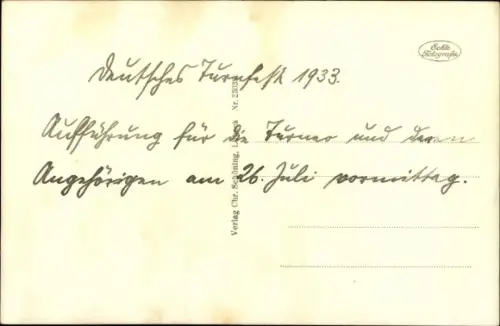 Echte
Fotografie
Deutsches Turnfest 1933.
Aufführung für die Turner und deren
Angehörigen am 26. Juli vormittag.
Verlag Chr. Schöning, Lübeck Nr.